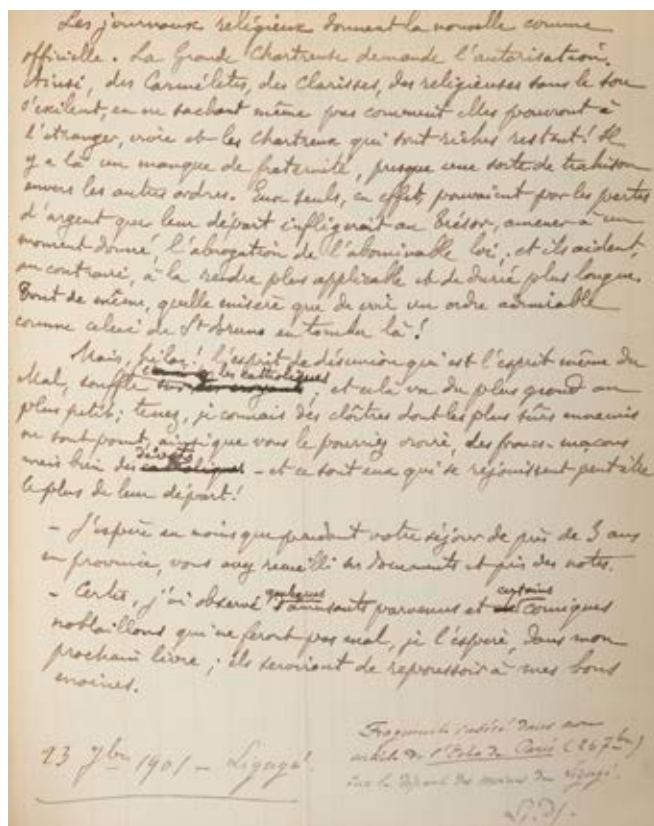 Les journaux religieux donnent la nouvelle comme
officielle. La Grande Chartreuse demande l'autorisation.
Ainsi, des Carmélites, des Clarisses, des religieuses sans le sou
s'exilent, en ne sachant même pas comment elles pourront à
l'étranger, vivre et les Chartreux qui sont riches restent! Il
y a là un manque de fraternité, presque une sorte de trahison
envers les autres ordres. Eux seuls, en effet, pouvaient par les pertes
d'argent que leur départ infligerait au Trésor, amener à un
moment donné, l'abrogation de l'abominable loi, et ils aident,
au contraire, à la rendre plus applicable et de durée plus longue.
Tout de même, quelle misère que de voir un ordre admirable
comme celui de St Bruno en tomber là!
Mais, hélas! l'esprit de désunion qui est l'esprit même du
les catholiques
Mal, souffle sur les croyants, et cela va du plus grand au
plus petit; tenez, je connais des cloîtres dont les plus sûrs ennemis
ne sont point, ainsi que vous le pourriez croire, des francs-maçons
dévots
mais bien des catholiques - et ce sont eux qui se réjouissent peut-être
le plus de leur départ!
- J'espère au moins que pendant votre séjour de près de 3 ans
en province, vous avez recueilli des documents et pris des notes.
quelques certains
- Certes, j'ai observé d'amusants parvenus et de comiques
noblaillons qui ne feront pas mal, je l'espère, dans mon
prochain livre; ils serviront de repoussoir à mes bons
moines.
23 7bre 1901 - Ligugé.
Fragment inséré dans mon
article de l'Echo de Paris (26 7bre)
sur le départ des moines de Ligugé.